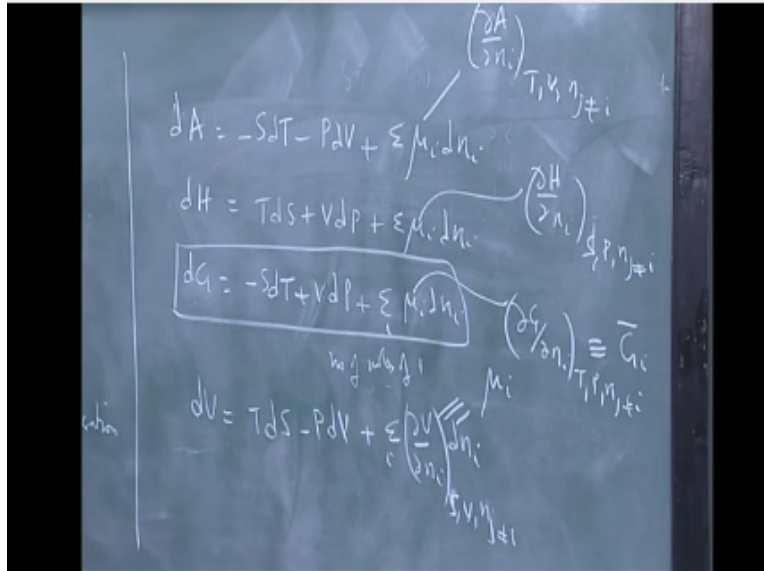 (∂A/∂nᵢ)T, V, nⱼ≠ᵢ
dA = -SdT - PdV + Σ μᵢ dnᵢ
dH = TdS + VdP + Σ μᵢ dnᵢ
(∂H/∂nᵢ)S, P, nⱼ≠ᵢ
dG = -SdT + VdP + Σᵢ μᵢ dnᵢ
(∂G/∂nᵢ)T, P, nⱼ≠ᵢ ≡ G̅ᵢ
μᵢ
dU = TdS - PdV + Σᵢ (∂U/∂nᵢ)S, V, nⱼ≠ᵢ dnᵢ
cation